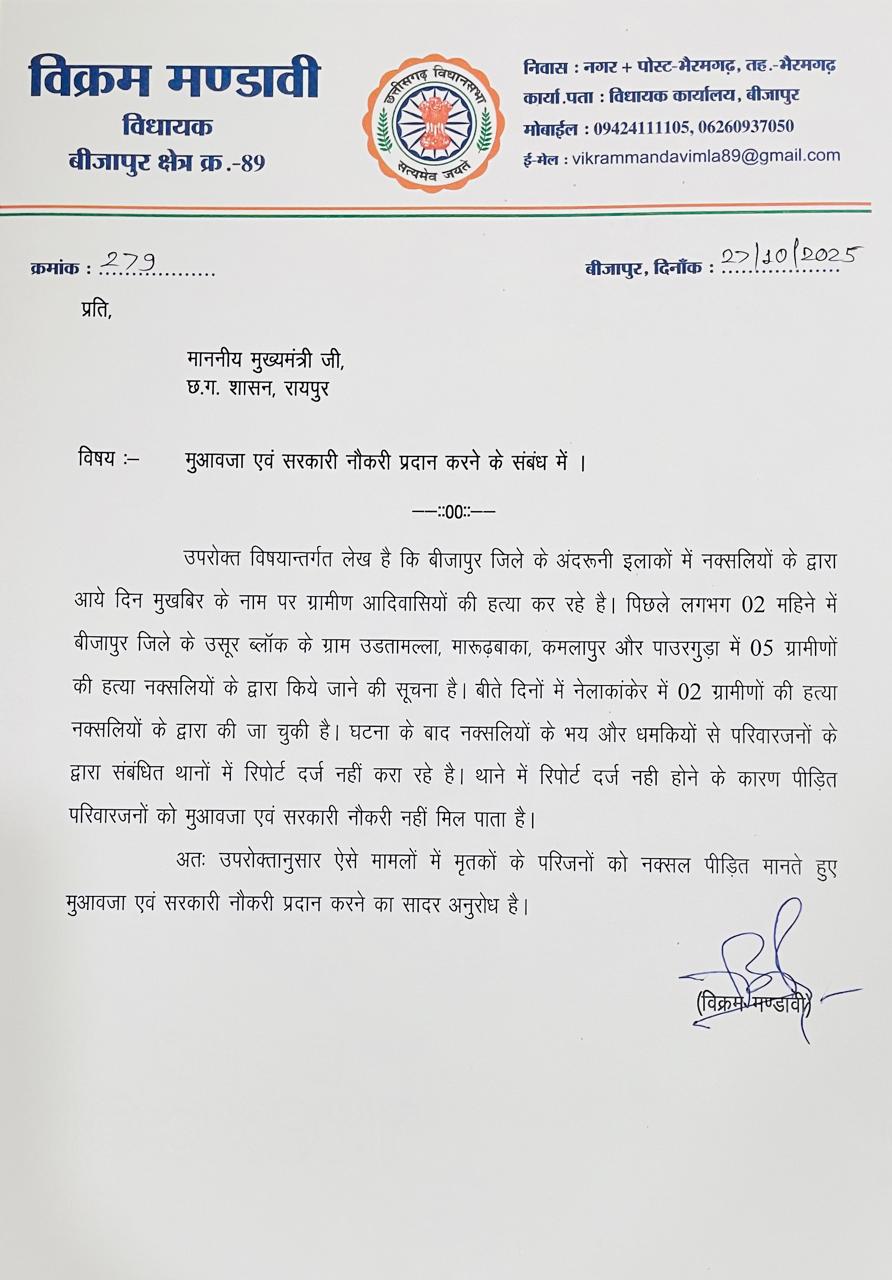 विक्रम मण्डावी
विधायक
बीजापुर क्षेत्र क्र.-89
छत्तीसगढ़ विधानसभा
सत्यमेव जयते
निवास : नगर + पोस्ट-भैरमगढ़, तह.-भैरमगढ़
कार्या.पता : विधायक कार्यालय, बीजापुर
मोबाईल : 09424111105, 06260937050
ई-मेल : vikrammandavimla89@gmail.com
क्रमांक : 279
बीजापुर, दिनाँक : 27/10/2025
प्रति,
माननीय मुख्यमंत्री जी,
छ.ग. शासन, रायपुर
विषय :– मुआवजा एवं सरकारी नौकरी प्रदान करने के संबंध में ।
––::00::––
उपरोक्त विषयान्तर्गत लेख है कि बीजापुर जिले के अंदरूनी इलाकों में नक्सलियों के द्वारा
आये दिन मुखबिर के नाम पर ग्रामीण आदिवासियों की हत्या कर रहे है। पिछले लगभग 02 महिने में
बीजापुर जिले के उसूर ब्लॉक के ग्राम उडतामल्ला, मारूढ़बाका, कमलापुर और पाउरगुड़ा में 05 ग्रामीणों
की हत्या नक्सलियों के द्वारा किये जाने की सूचना है। बीते दिनों में नेलाकांकेर में 02 ग्रामीणों की हत्या
नक्सलियों के द्वारा की जा चुकी है। घटना के बाद नक्सलियों के भय और धमकियों से परिवारजनों के
द्वारा संबंधित थानों में रिपोर्ट दर्ज नहीं करा रहे है। थाने में रिपोर्ट दर्ज नही होने के कारण पीड़ित
परिवारजनों को मुआवजा एवं सरकारी नौकरी नहीं मिल पाता है।
अतः उपरोक्तानुसार ऐसे मामलों में मृतकों के परिजनों को नक्सल पीड़ित मानते हुए
मुआवजा एवं सरकारी नौकरी प्रदान करने का सादर अनुरोध है।
(विक्रम मण्डावी)